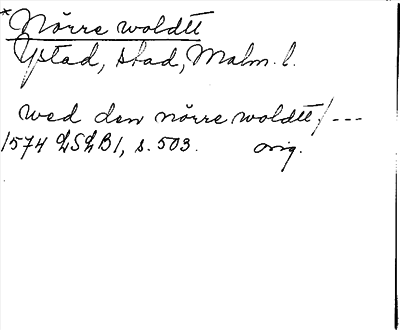 *Nörre woldtt
Ystad, stad, Malm. l.
wed den nörre woldtt / ---
1574 LSLB1, s. 503. orig.